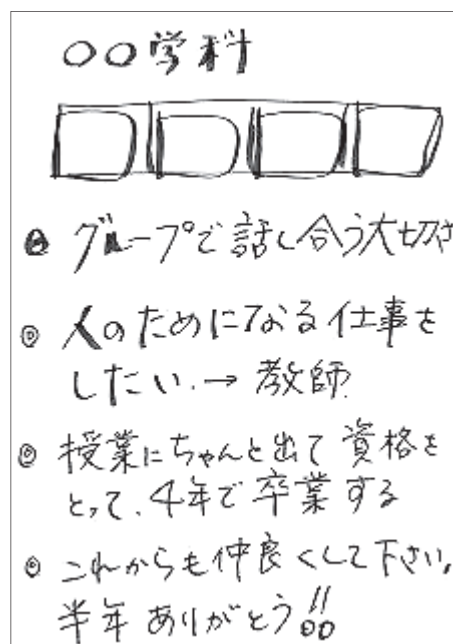 ○○学科
◎ グループで話し合う大切さ
◎ 人のためになる仕事を
したい.→ 教師.
◎ 授業にちゃんと出て資格を
とって、4年で卒業する
◎ これからも仲良くして下さい。
半年ありがとう!!